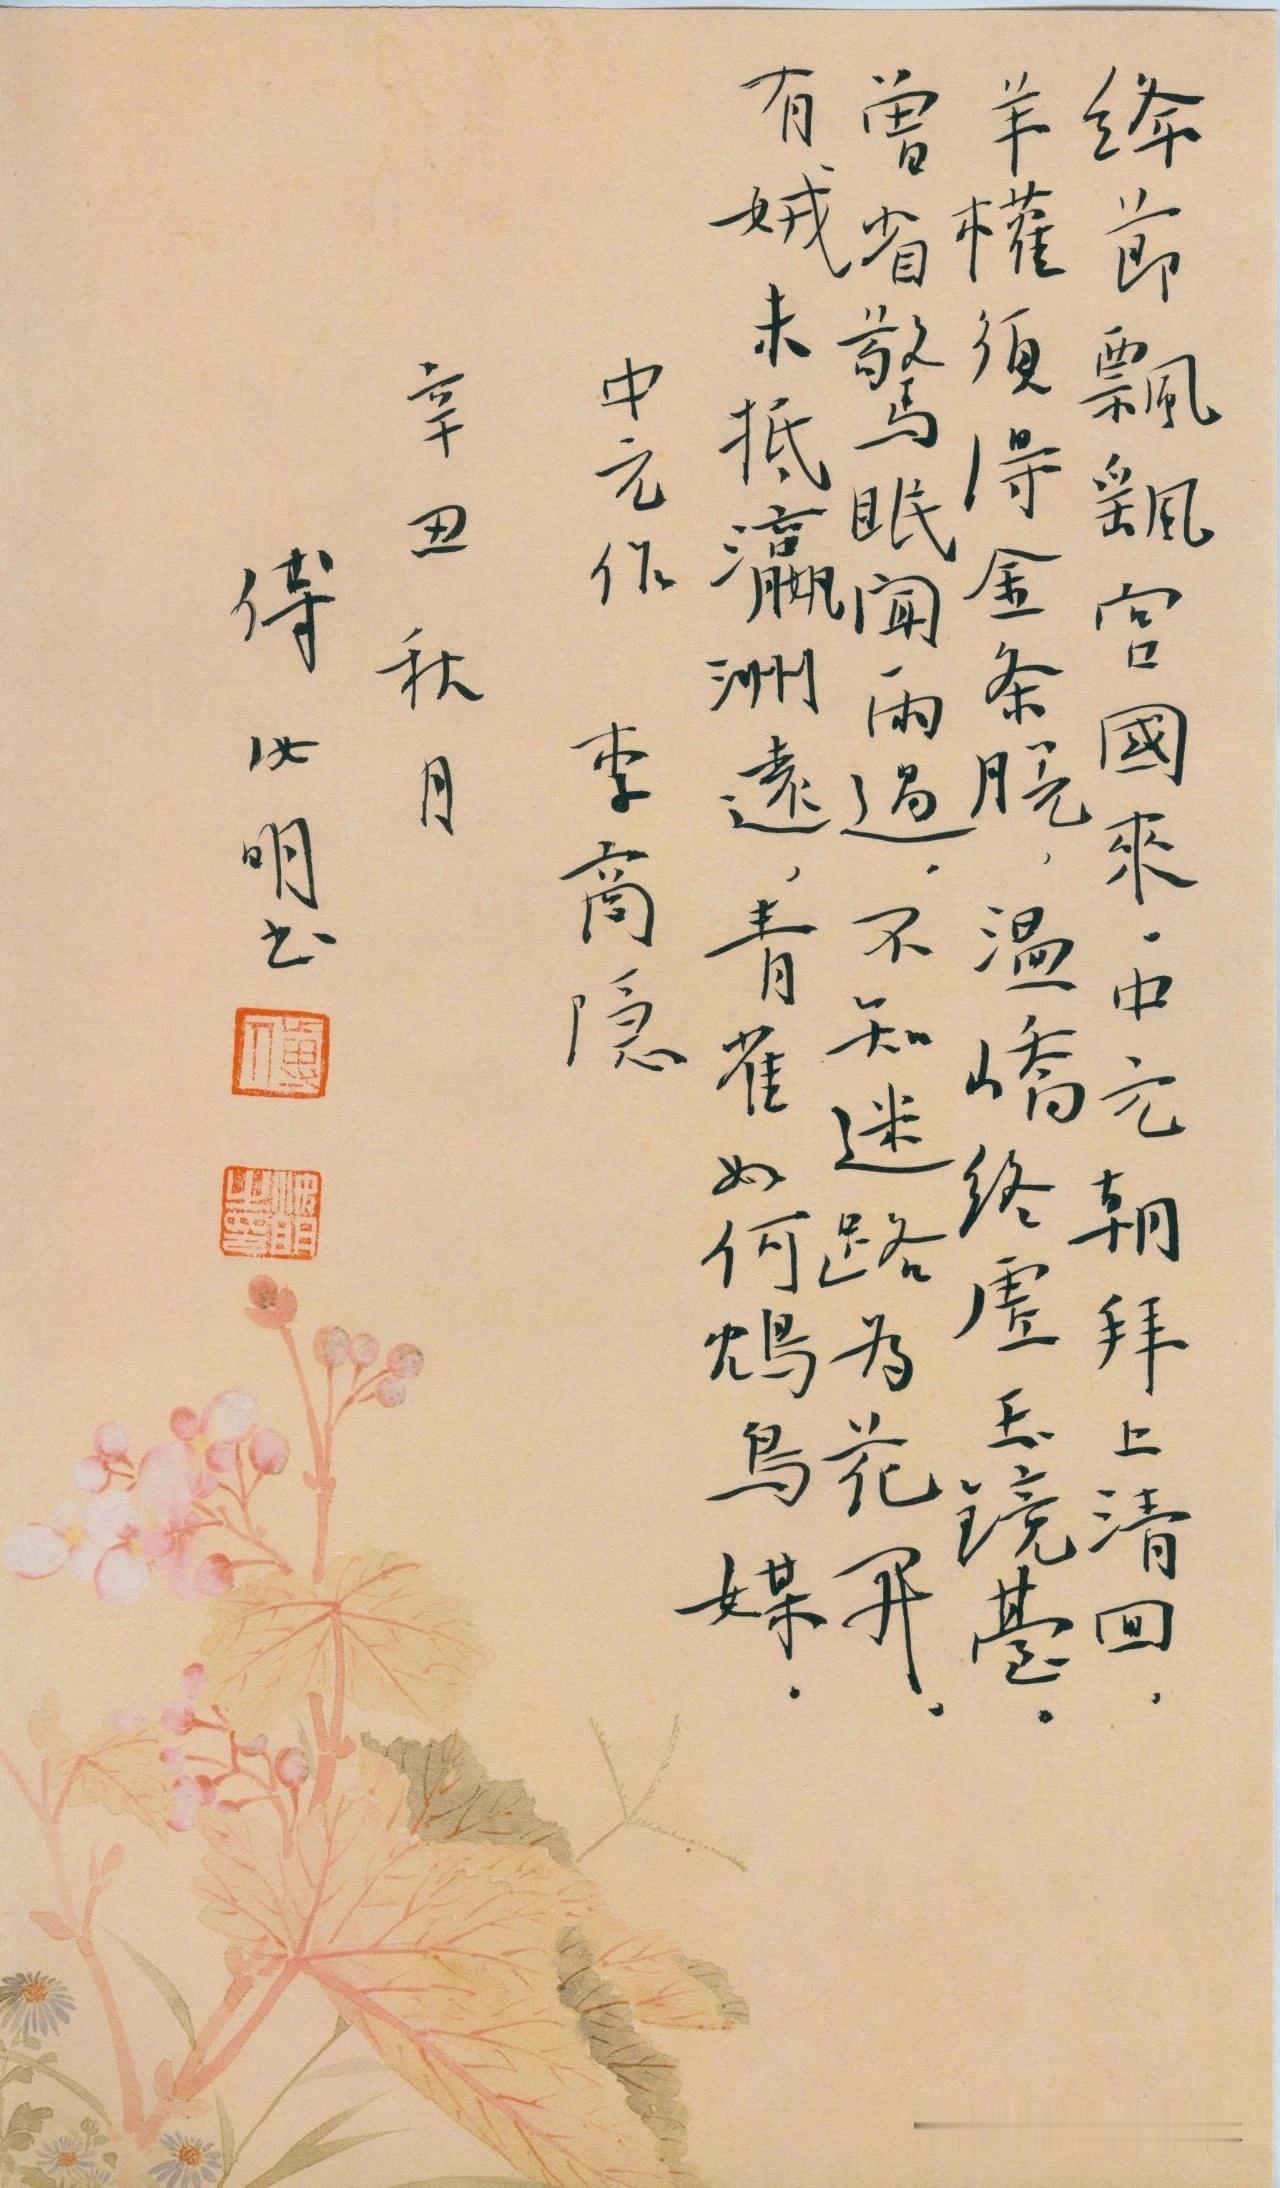 绛节飘飖宫國來．中元朝拜上清回，
羊權须得金条脱，温嶠终虚玉镜臺．
曾省驚眠闻雨過．不知迷路为花開．
有娀未抵瀛洲遠，青雀如何鴆鳥媒．
中元作 李商隐
辛丑秋月
傅
明书